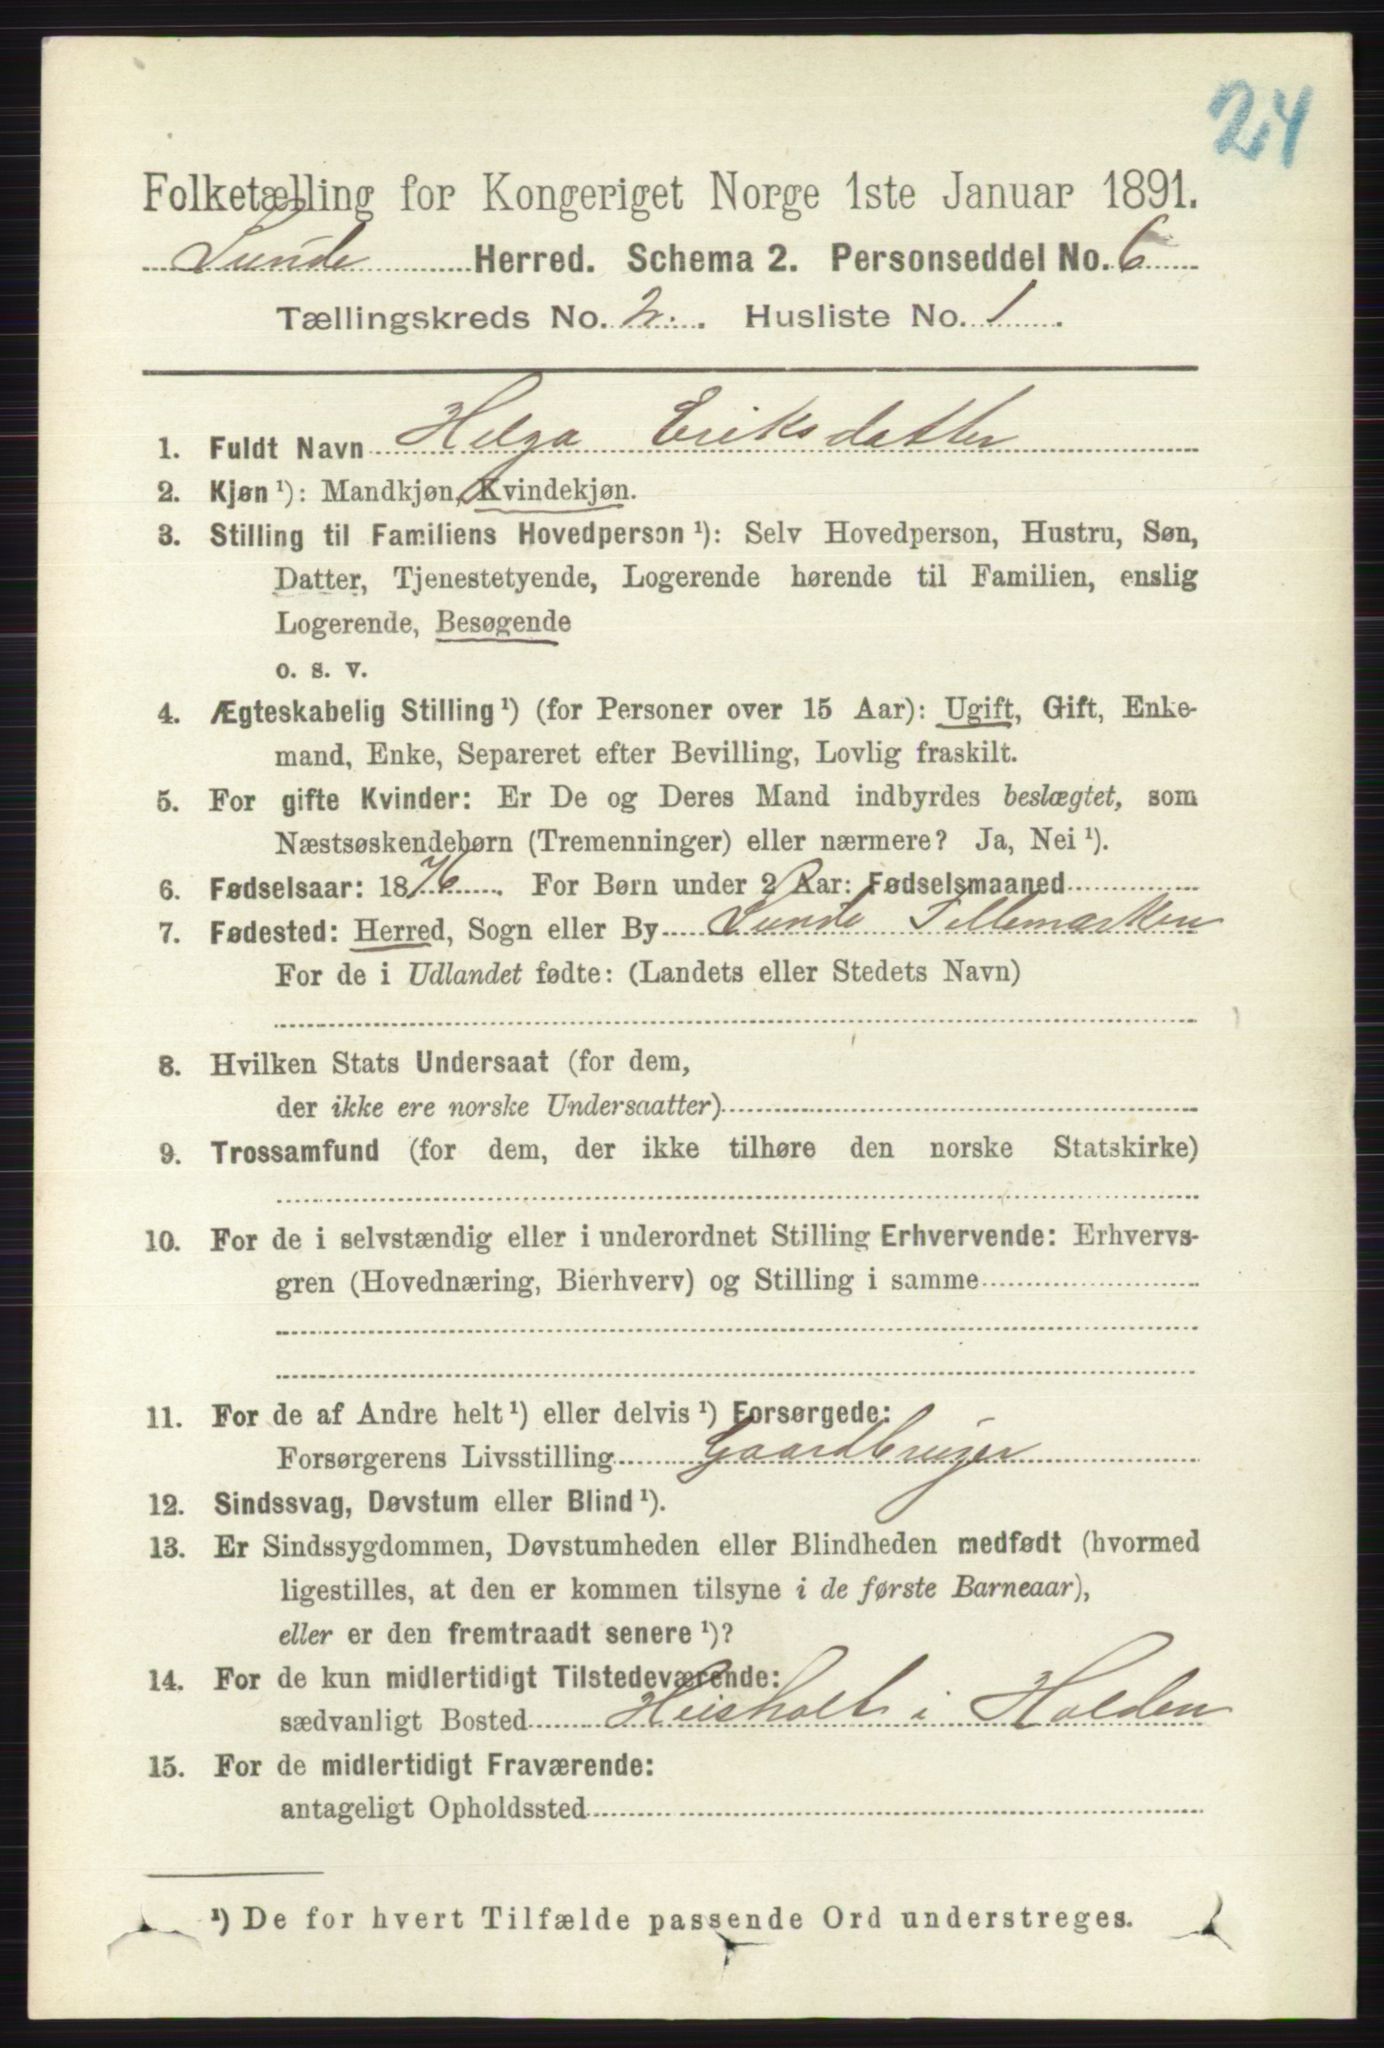 24
Folketælling for Kongeriget Norge 1ste Januar 1891.
Lunde Herred. Schema 2. Personseddel No. 6
Tællingskreds No. 2. Husliste No. 1.
1. Fuldt Navn Helga Eriksdatter
2. Kjøn ¹): Mandkjøn, Kvindekjøn.
3. Stilling til Familiens Hovedperson ¹): Selv Hovedperson, Hustru, Søn,
Datter, Tjenestetyende, Logerende hørende til Familien, enslig
Logerende, Besøgende
o. s. v.
4. Ægteskabelig Stilling ¹) (for Personer over 15 Aar): Ugift, Gift, Enke-
mand, Enke, Separeret efter Bevilling, Lovlig fraskilt.
5. For gifte Kvinder: Er De og Deres Mand indbyrdes beslægtet, som
Næstsøskendebørn (Tremenninger) eller nærmere? Ja, Nei ¹).
6. Fødselsaar: 1876. For Børn under 2 Aar: Fødselsmaaned
7. Fødested: Herred, Sogn eller By Lunde Tellemarken
For de i Udlandet fødte: (Landets eller Stedets Navn)
8. Hvilken Stats Undersaat (for dem,
der ikke ere norske Undersaatter)
9. Trossamfund (for dem, der ikke tilhøre den norske Statskirke)
10. For de i selvstændig eller i underordnet Stilling Erhvervende: Erhvervs-
gren (Hovednæring, Bierhverv) og Stilling i samme
11. For de af Andre helt ¹) eller delvis ¹) Forsørgede:
Forsørgerens Livsstilling Gaardbruger
12. Sindssvag, Døvstum eller Blind ¹).
13. Er Sindssygdommen, Døvstumheden eller Blindheden medfødt (hvormed
ligestilles, at den er kommen tilsyne i de første Barneaar),
eller er den fremtraadt senere ¹)?
14. For de kun midlertidigt Tilstedeværende:
sædvanligt Bosted Heisholt i Holden
15. For de midlertidigt Fraværende:
antageligt Opholdssted
¹) De for hvert Tilfælde passende Ord understreges.